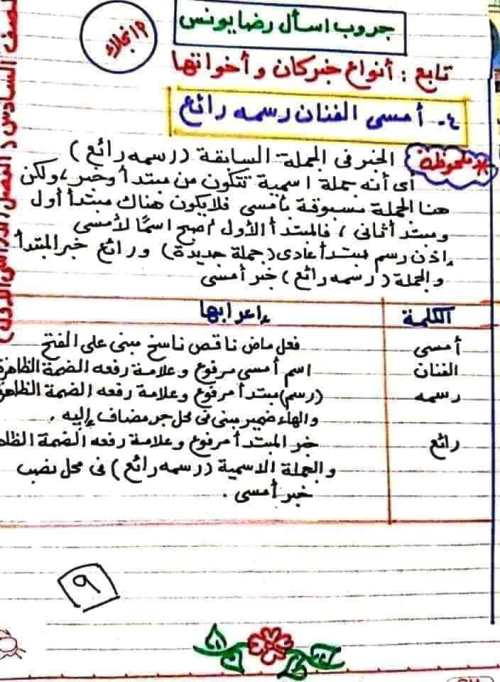 جروب اسأل رضا يونس
م١ نجلاء
تابع : أنواع خبر كان و أخواتها
٤- أمسى الفنان رسمه رائع
* ملحوظة الخبر فى الجملة السابقة ( رسمه رائع )
أى أنه جملة اسمية تتكون من مبتدأ وخبر ، ولكن
هنا الجملة مسبوقة بأمسى فلا يكون هناك مبتدأ أول
ومبتدأ ثانى ، فالمبتدأ الأول أصبح اسمًا لأمسى
إذن رسم مبتدأ عادى ( جملة جديدة ) و رائع خبر المبتدأ
و الجملة ( رسمه رائع ) خبر أمسى
الكلمة إعرابها
أمسى فعل ماض ناقص ناسخ مبنى على الفتح
الفنان اسم أمسى مرفوع و علامة رفعه الضمة الظاهرة
رسمه (رسم) مبتدأ مرفوع و علامة رفعه الضمة الظاهرة
والهاء ضمير مبنى فى محل جر مضاف إليه .
رائع خبر المبتدأ مرفوع و علامة رفعه الضمة الظا
و الجملة الاسمية ( رسمه رائع ) فى محل نصب
خبر أمسى .
٩
الصف السادس ( الفصل الدراسى